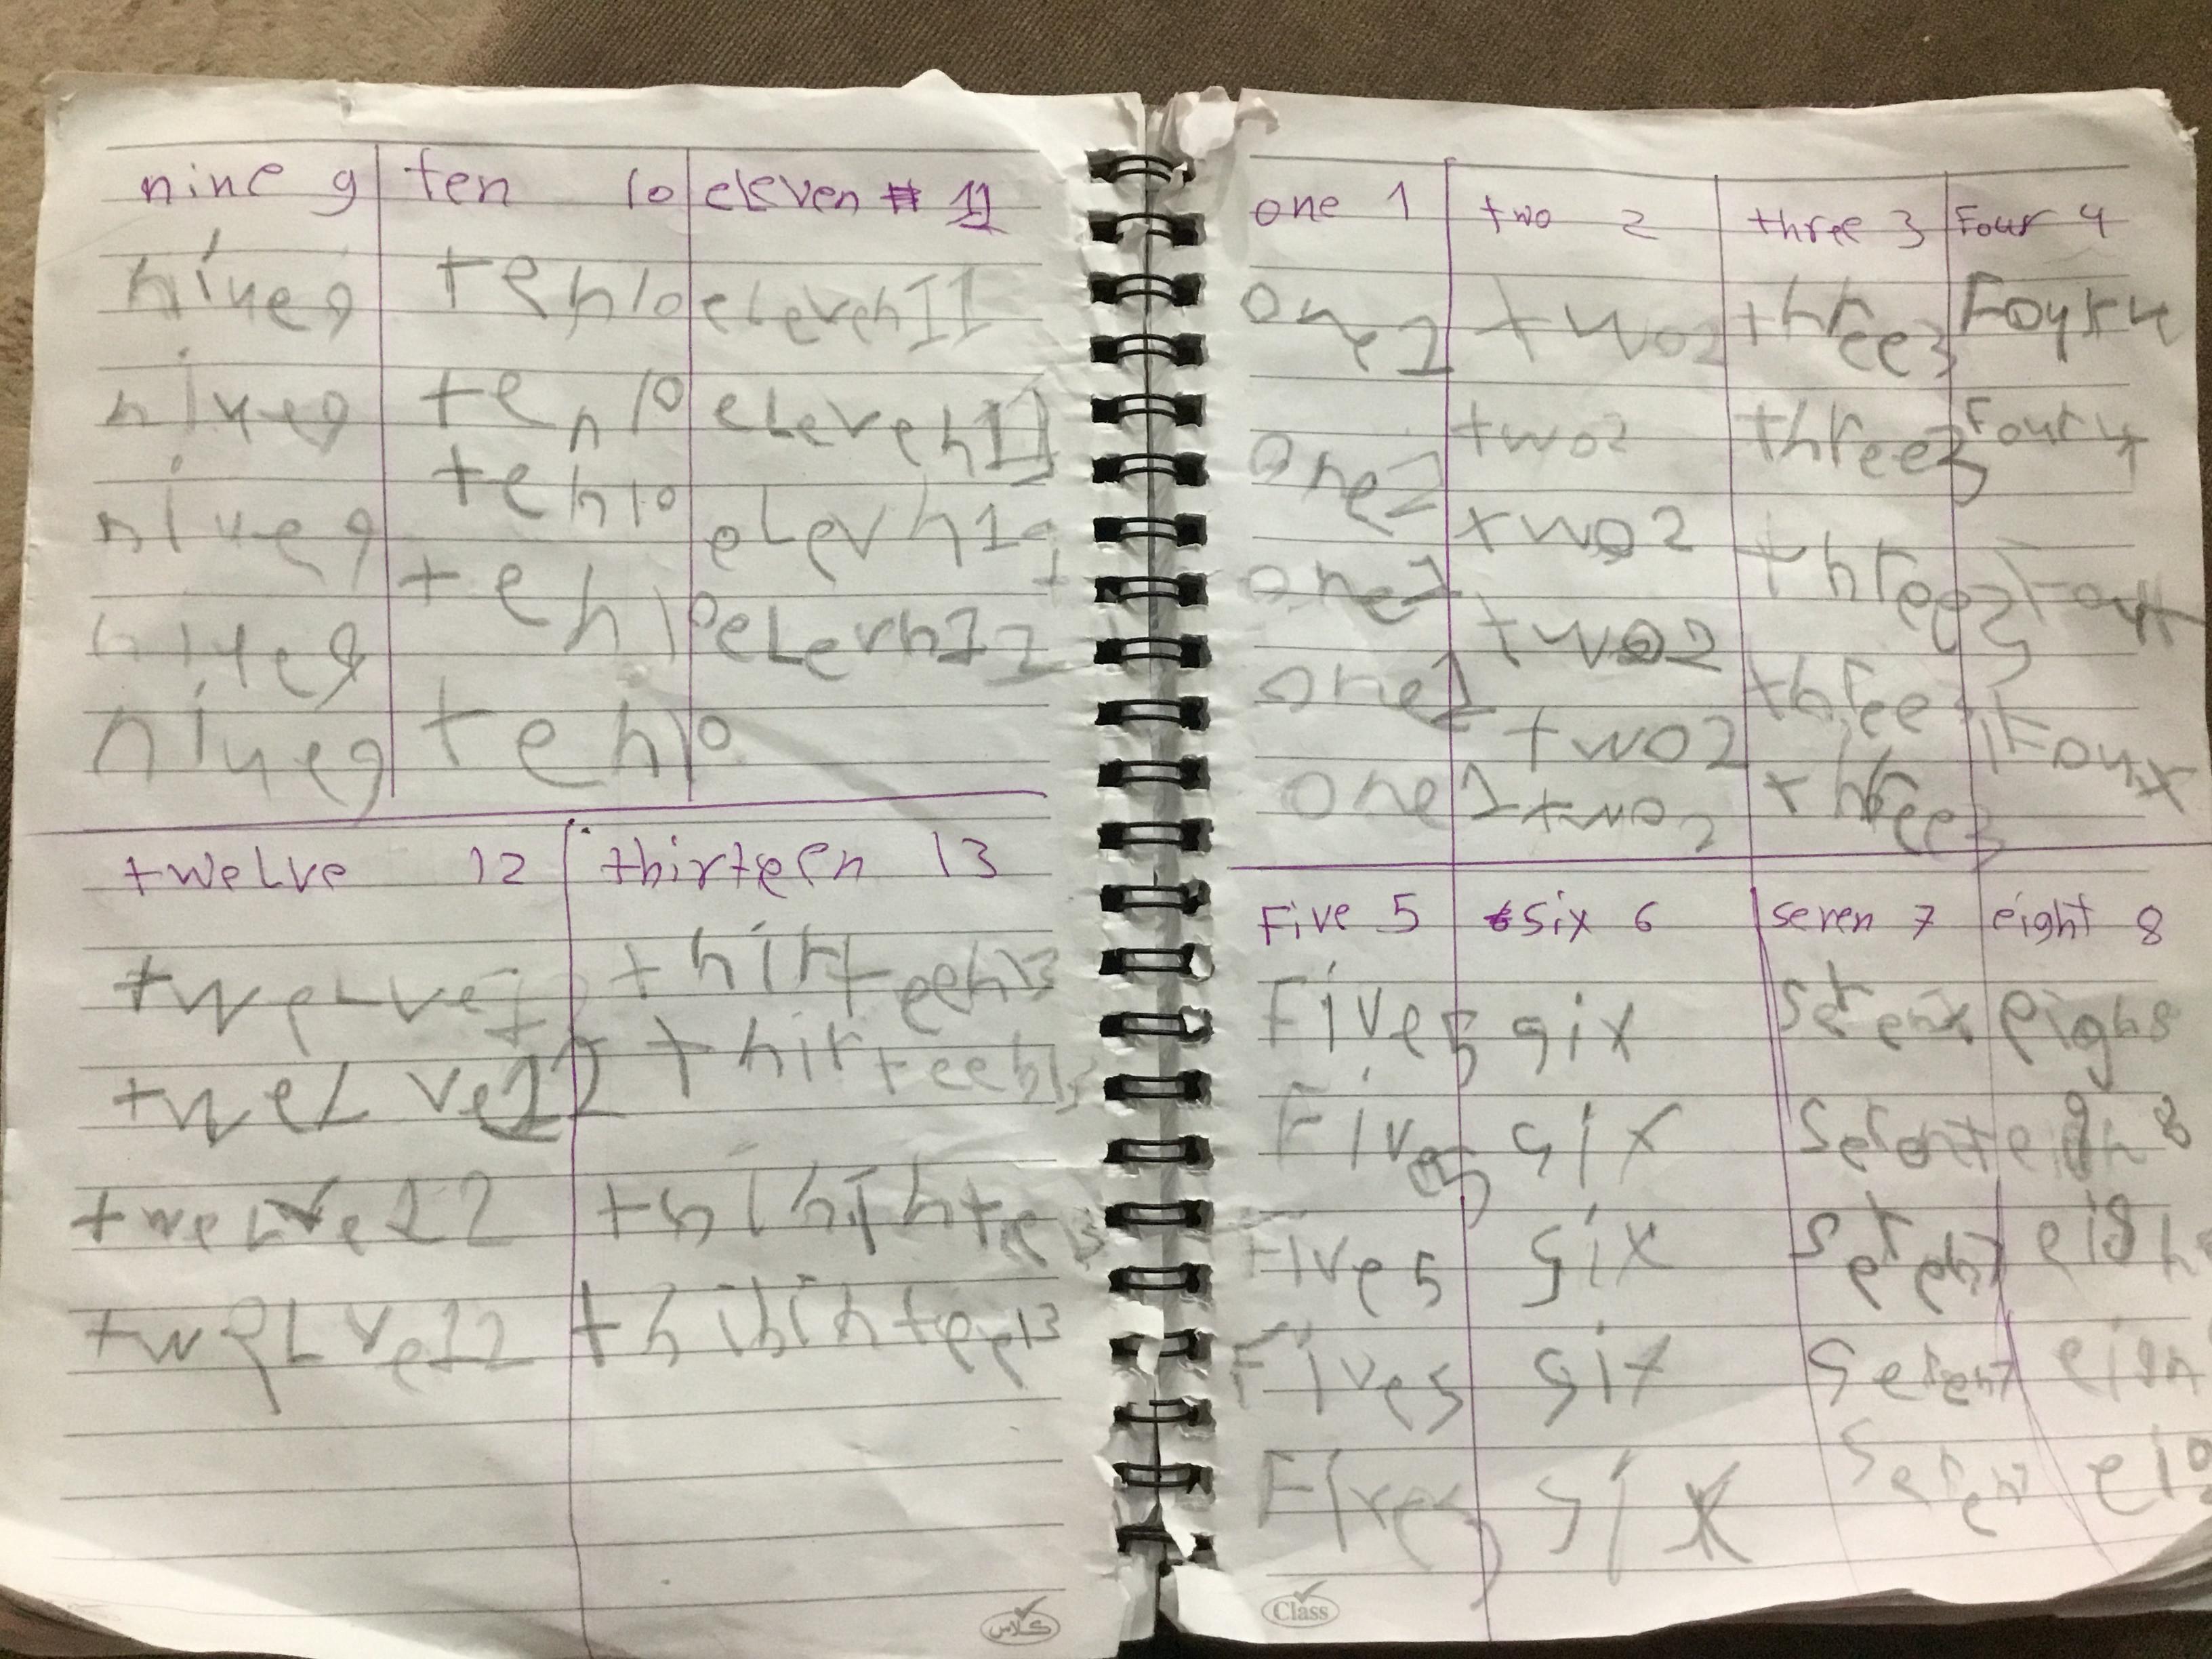 nine 9 ten 10 eleven 11
nine9 ten10 eleven11
nine9 ten10 eleven11
nine9 ten10 elevn11
nine9 ten10 elevn11
nine9 ten10
twelve 12 thirteen 13
twelve12 thirteen13
twelve12 thirteen13
twelve12 thihihte13
twelve12 thihihtee13
كلاس
one 1 two 2 three 3 Four 4
one1 two2 three3 Four4
one1 two2 three3 Four4
one1 two2 three3 Four
one1 two2 three3 Four
one1 two2 three3
two2
Five 5 six 6 seven 7 eight 8
Five5 six eigh8
Five5 six eigh 8
Five5 six eigh
Five5 six eigh
Five5 six eig
Class